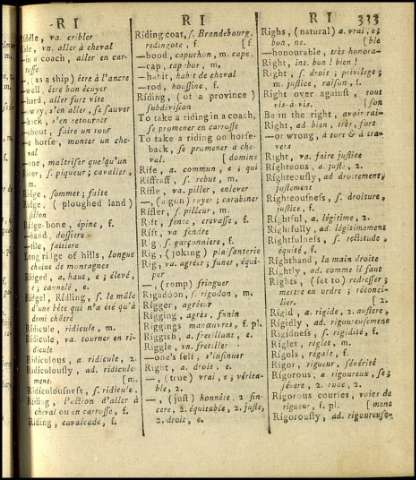 RI
RI
RI 313
va. cribler
va. aller à cheval
in a coach, aller en car-
rosse
(as a ship) être à l'ancre
well, être bon écuyer
hard, aller fort vite
s'en aller, se sauver
back, s'en retourner
about, faire un tour
horse, monter un che-
val
maîtriser quelqu'un
s. piqueur; cavalier,
m.
Ridge, sommet; faîte
Ridge, (ploughed land)
sillon
Ridge-bone, épine, f.
—band, dossiere
—tile, faitiere
Long ridge of hills, longue
chaine de montagnes
Ridged, a. haut, e; élevé,
e; cannelé, e.
Ridgel, Ridling, s. le mâle
d'une bête qui n'a été qu'à
demi châtré
Ridicule, ridicule, m.
Ridicule, va. tourner en ri-
dicule
Ridiculous, a. ridicule, 2.
Ridiculously, ad. ridicule-
ment. [m.
Ridiculousness, s. ridicule,
Riding, l'action d'aller à
cheval ou en carrosse, f.
Riding, cavalcade, f.
Riding coat, s. Brandebourg,
redingote, f. [f
—hood, capuchon, m. cape,
—cap, tap-bor, m.
—habit, habit de cheval
—rod, houssine, f.
Riding, (of a province)
subdivision
To take a riding in a coach,
se promener en carrosse
To take a riding on horse-
back, se promener à che-
val. [domine
Rife, a. commun, e; qui
Riffraff, s. rebut, m.
Rifle, va. piller, enlever
—, (a gun) rayer; carabiner
Rifler, s. pilleur, m.
Rift, fente, crevasse, f.
Rift, va fendre
Rig, s. garçonniere, f.
Rig, (joking) plaisanterie
Rig, va. agréer; funer, équi-
per
—, (romp) fringuer
Rigadoon, s. rigodon, m.
Rigger, agréeur
Rigging, agrès, funin
Riggings manœuvres, f. pl.
Riggish, a. fretillant, e.
Riggle, vn. fretiller
—one's self, s'insinuer
Right, a. droit, e.
—, (true) vrai, e; vérita-
ble, 2.
—, (just) honnête, 2 sin-
cere, 2. équitable, 2. juste,
2. droit, e.
Righs, (natural) a. vrai, e;
bon, ne. [ble
—honourable, très honora-
Right, int. bon! bien!
Right, s. droit; privilege;
m. justice, raison, f.
Right over against, tout
vis-à-vis. [son
Be in the right, avoir rai-
Right, ad. bien, très, fort
—or wrong, à tort & à tra-
vers
Right, va. faire justice
Righteous, a. juste, 2.
Righteously, ad droitement,
justement
Righteousness, s. droiture,
justice, f.
Rightful, a. légitime, 2.
Rightfully, ad. légitimement
Rightfulness, s. rectitude,
équité, f.
Righthand, la main droite
Rightly, ad. comme il faut
Rights, (set to) redresser;
mettre en ordre; réconci-
lier. [2.
Rigid, a. rigide, 2. austere,
Rigidly, ad. rigoureusement
Rigidness, s. rigidité, f.
Riglet, réglet, m.
Rigols, régale, f.
Rigor, rigueur, sévérité
Rigorous, a. rigoureux, se;
sévere, 2. rude, 2.
Rigorous couries, voies de
rigueur, f. pl. [ment
Rigorously, ad. rigoureuse-